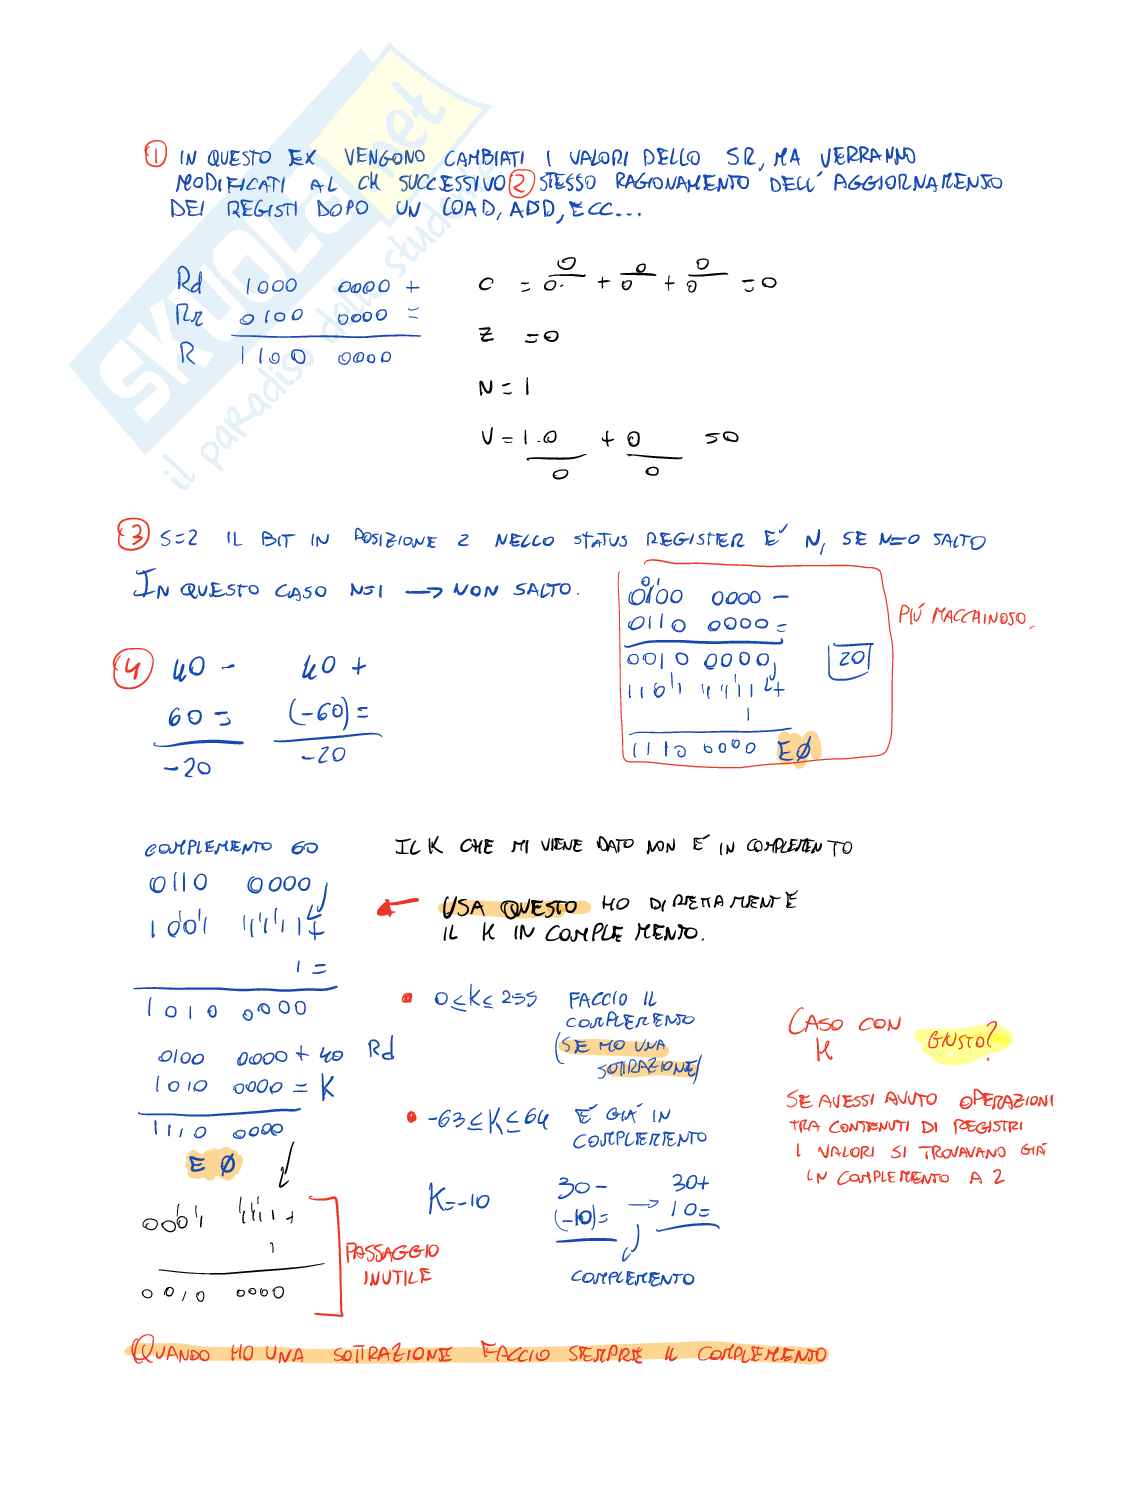 SKUOLA.net
il paradiso dello studente
① IN QUESTO EX VENGONO CAMBIATI I VALORI DELLO SR, MA VERRANNO
MODIFICATI AL CK SUCCESSIVO ② STESSO RAGIONAMENTO DELL'AGGIORNAMENTO
DEI REGISTI DOPO UN LOAD, ADD, ECC...
Rd 1000 0000 +
Rr 0100 0000 =
R 1100 0000
C = 0·0 + 0·0 + 0·0 = 0
Z = 0
N = 1
V = 1·0 + 0 = 0
0 0
③ S=2 IL BIT IN POSIZIONE 2 NELLO STATUS REGISTER E' N, SE N=0 SALTO
IN QUESTO CASO N=1 → NON SALTO.
0100 0000 -
0110 0000 =
0010 0000
1101 1111 +
1
1110 0000 EØ
20
PIÚ MACCHINOSO.
④ 40 -
60 =
-20
40 +
(-60) =
-20
COMPLEMENTO 60
0110 0000
1001 1111 +
1 =
1010 0000
0100 0000 + 40 Rd
1010 0000 = K
1110 0000
E Ø
0001 1111 +
1
0010 0000
PASSAGGIO
INUTILE
IL K CHE MI VIENE DATO NON É IN COMPLEMENTO
USA QUESTO HO DIRETTAMENTE
IL K IN COMPLEMENTO.
• 0≤K≤255 FACCIO IL
COMPLEMENTO
(SE HO UNA
SOTTRAZIONE)
• -63≤K≤64 É GIÁ IN
COMPLEMENTO
K=-10
30 -
(-10) =
→
30 +
10 =
COMPLEMENTO
CASO CON
K
GIUSTO?
SE AVESSI AVUTO OPERAZIONI
TRA CONTENUTI DI REGISTRI
I VALORI SI TROVAVANO GIÁ
IN COMPLEMENTO A 2
QUANDO HO UNA SOTTRAZIONE FACCIO SEMPRE IL COMPLEMENTO